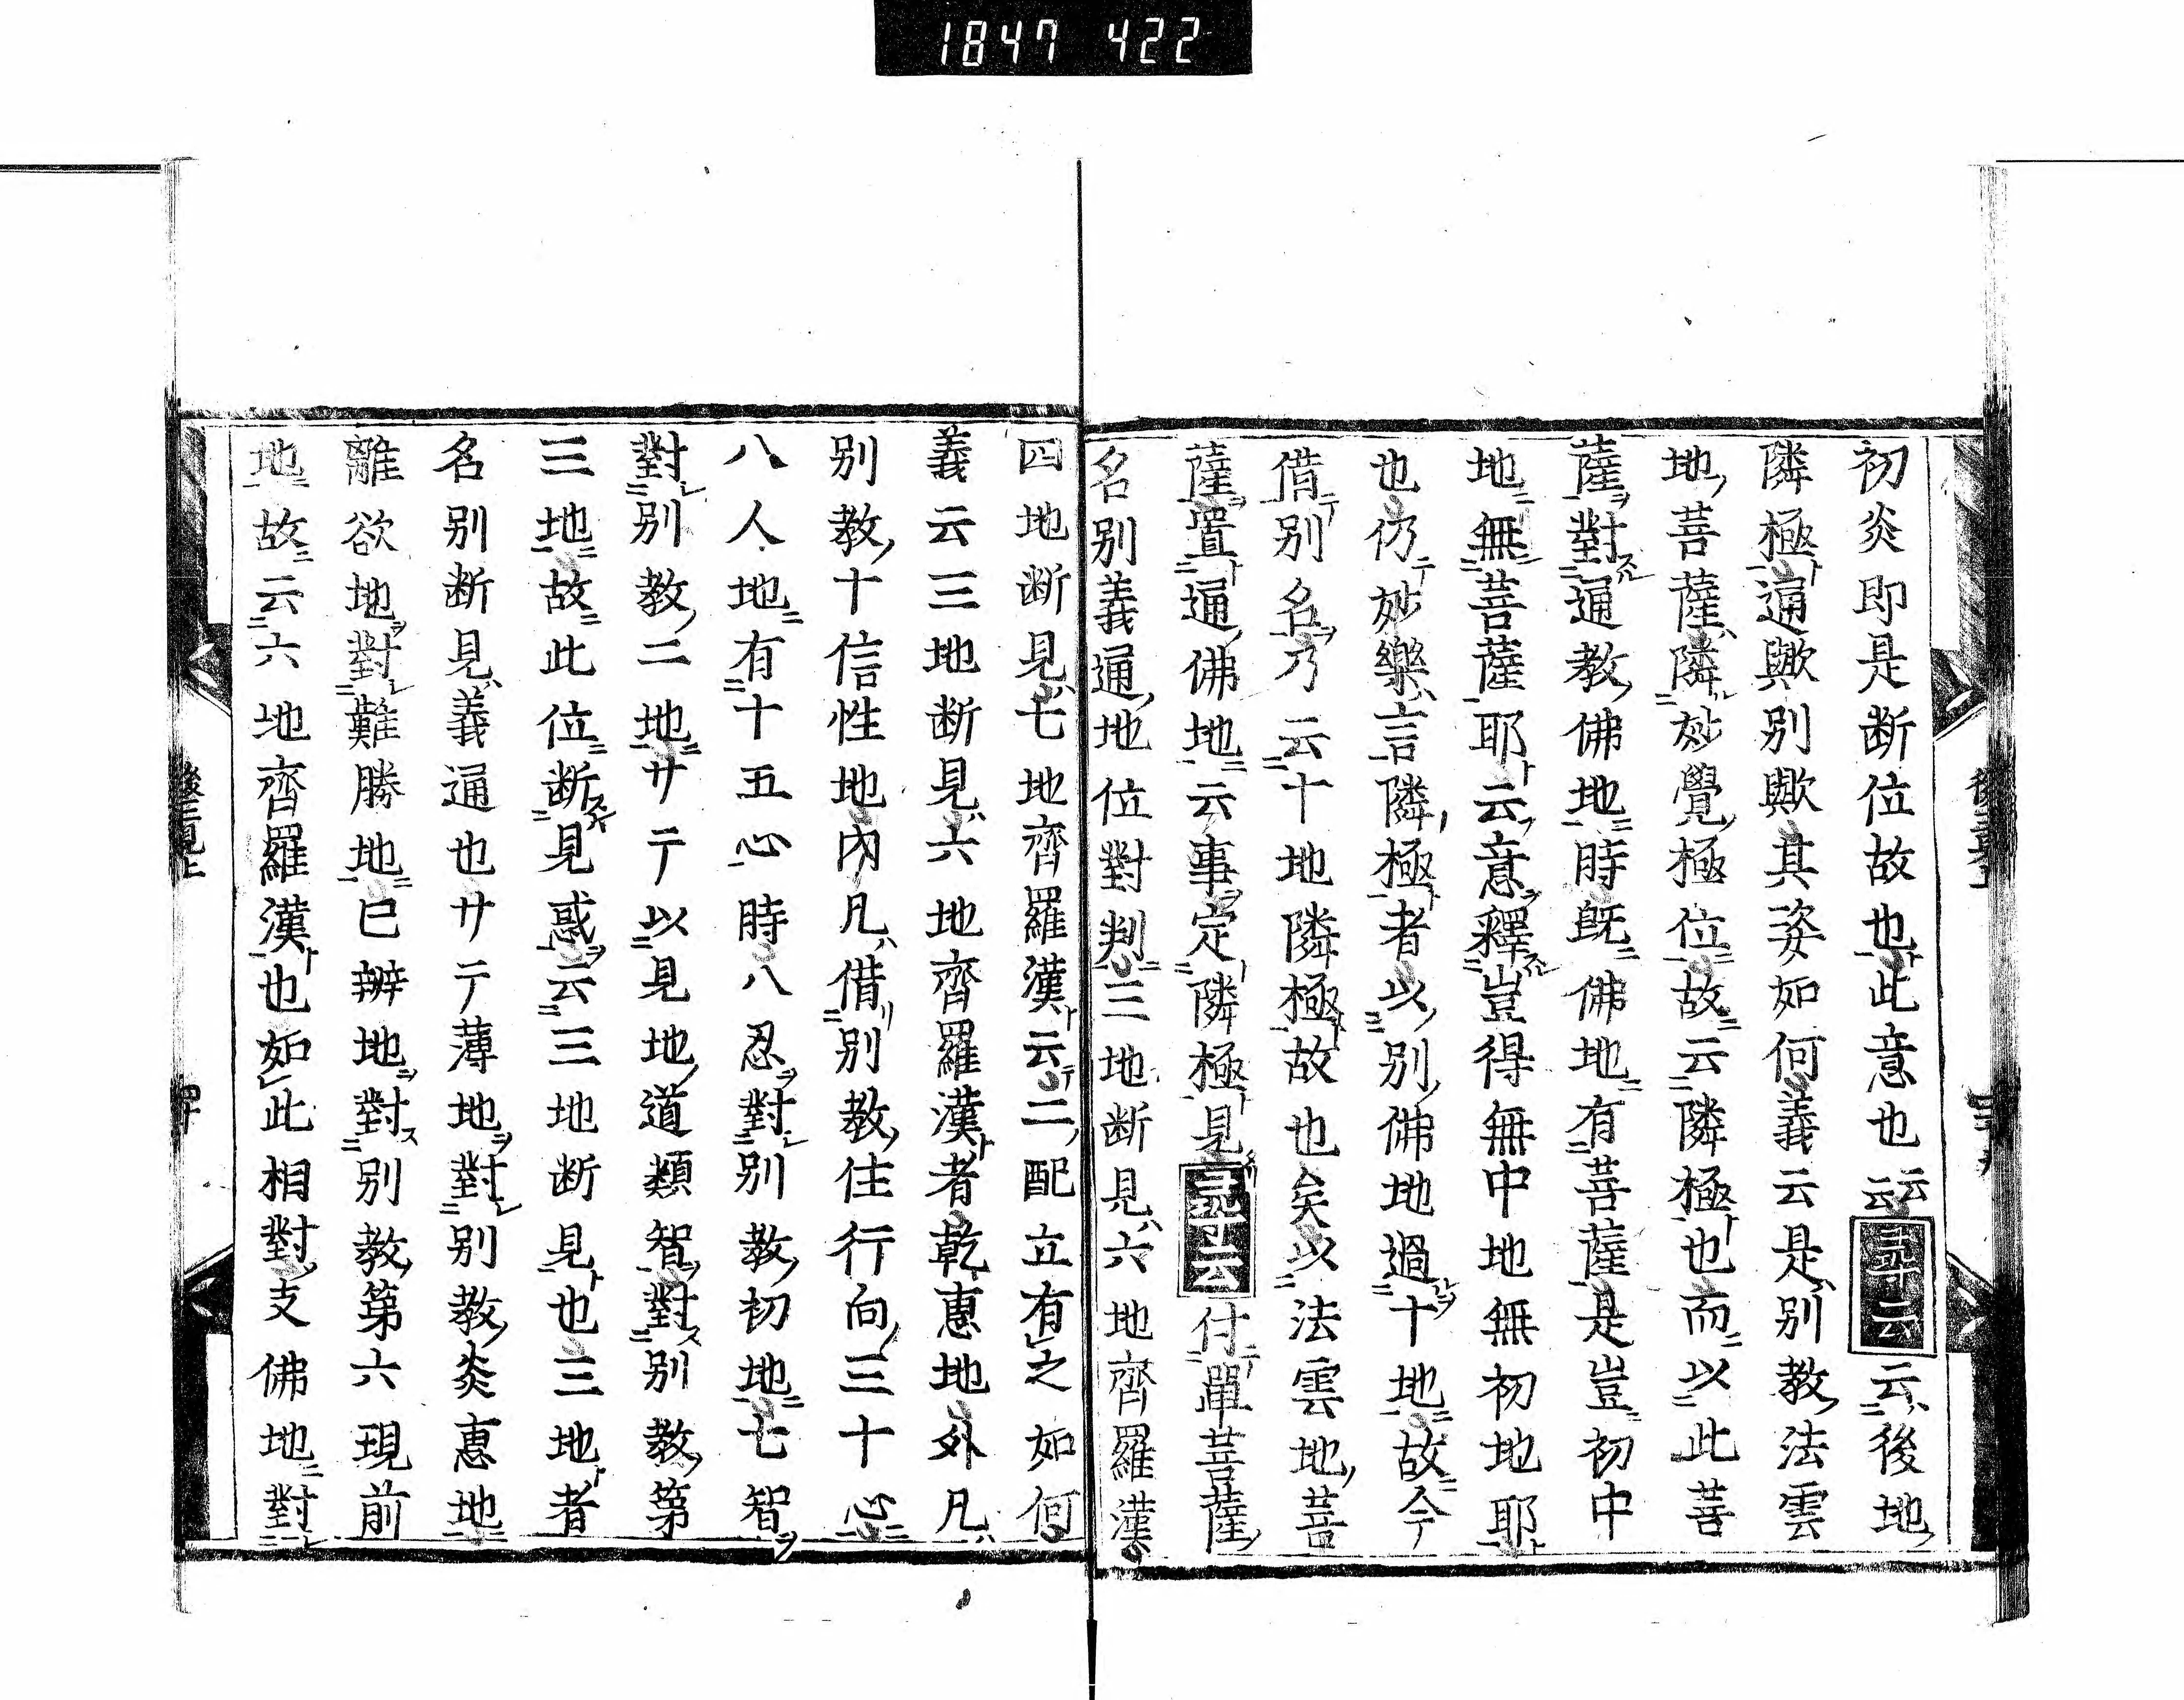 1847 422
初炎即是断位故也此意也云云 尋云云後地
隣極通歟別歟其姿如何義云是別教法雲
地菩薩隣妙覺極位故云隣極也而以此菩
薩對通教佛地時旣佛地有菩薩是豈初中
地無菩薩耶云意釋豈得無中地無初地耶
也仍妙樂言隣極者以別佛地過十地故今
借別名乃云十地隣極故也矣以法雲地菩
薩置通佛地云事定隣極見 尋云付單菩薩
名別義通地位對判三地断見六地齊羅漢
四地断見七地齊羅漢云二配立有之如何
義云三地断見六地齊羅漢者乾惠地外凡
別教十信性地內凡借別教住行向三十心
八人地有十五心時八忍對別教初地七智
對別教二地サテ以見地道類智對別教第
三地故此位断見惑云三地断見也三地者
名別断見義通也サテ薄地對別教炎惠地
離欲地對難勝地已辨地對別教第六現前
地故云六地齊羅漢也如此相對支佛地對